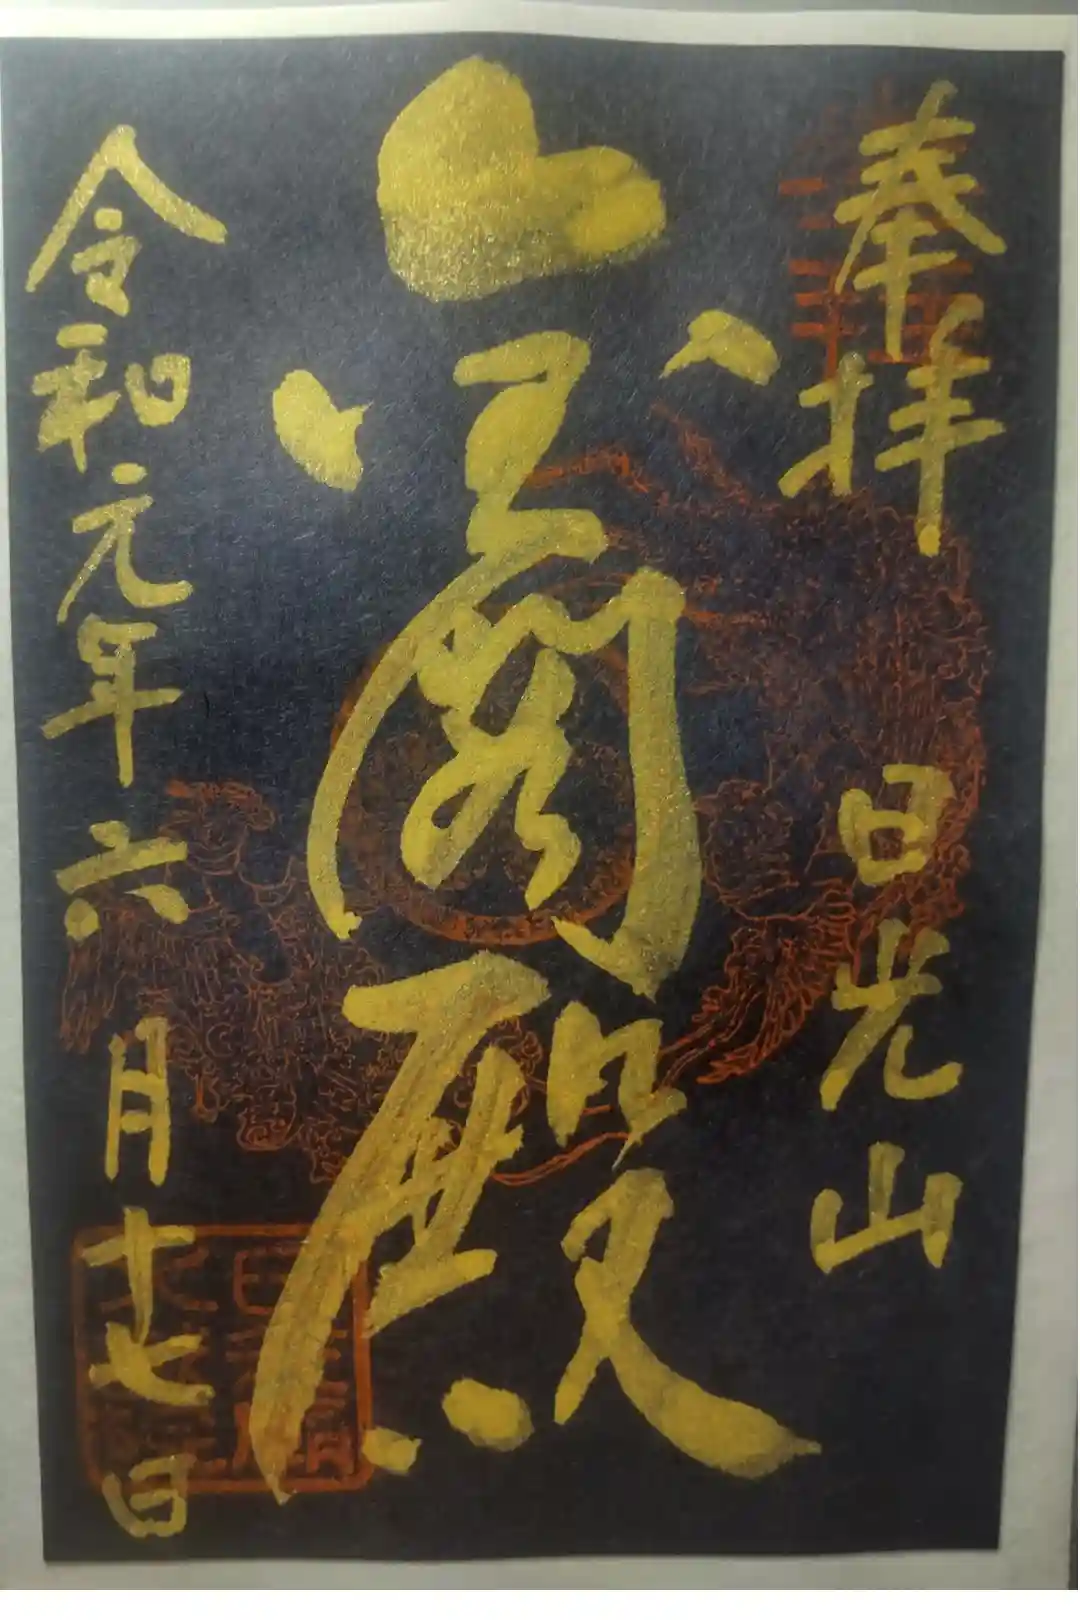 奉拝　日光山
金閣殿
令和元年六月十七日